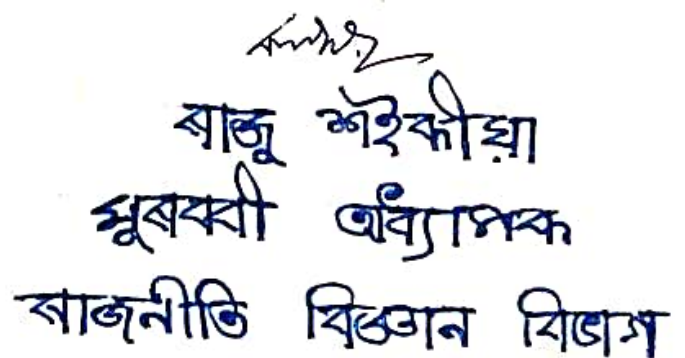 ৰাজু শইকীয়া
মুৰব্বী অধ্যাপক
ৰাজনীতি বিজ্ঞান বিভাগ